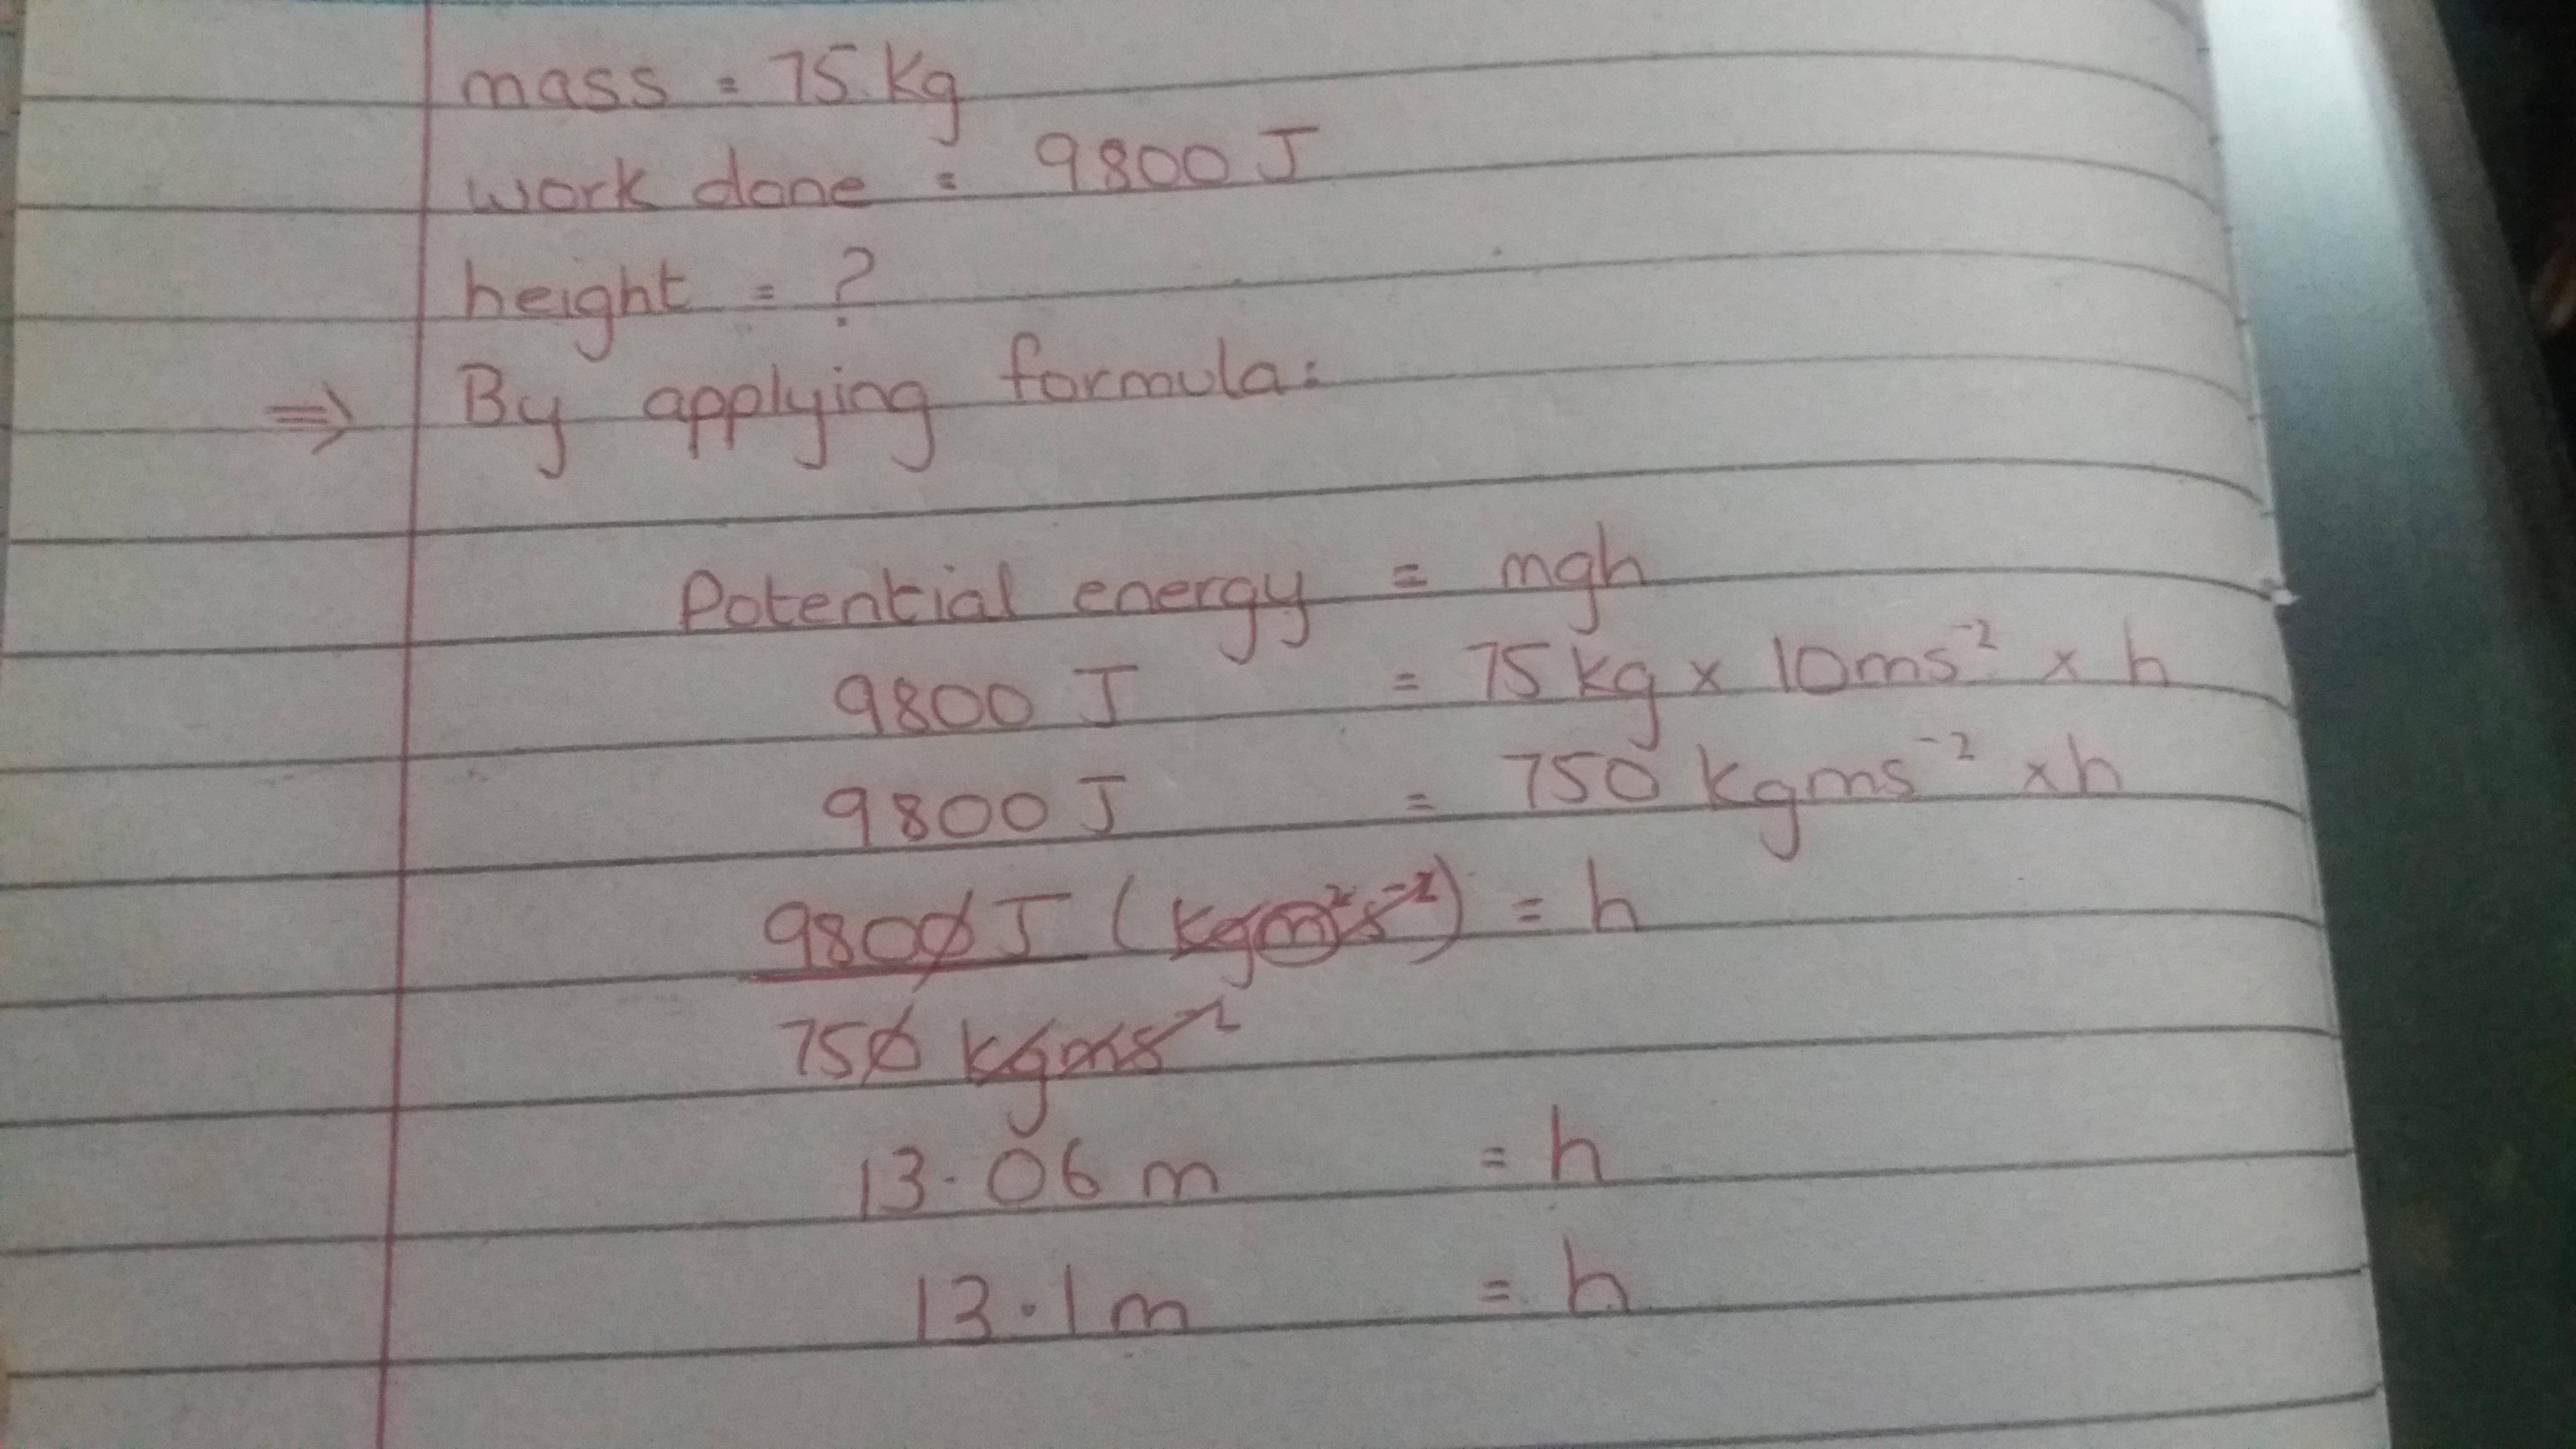 mass = 75 kg
work done = 9800 J
height = ?
⇒ By applying formula:
Potential energy = mgh
9800 J = 75 kg x 10 ms⁻² x h
9800 J = 750 kgms⁻² x h
9800 J (kgm²s⁻²) = h
750 kgms⁻²
13.06 m = h
13.1 m = h